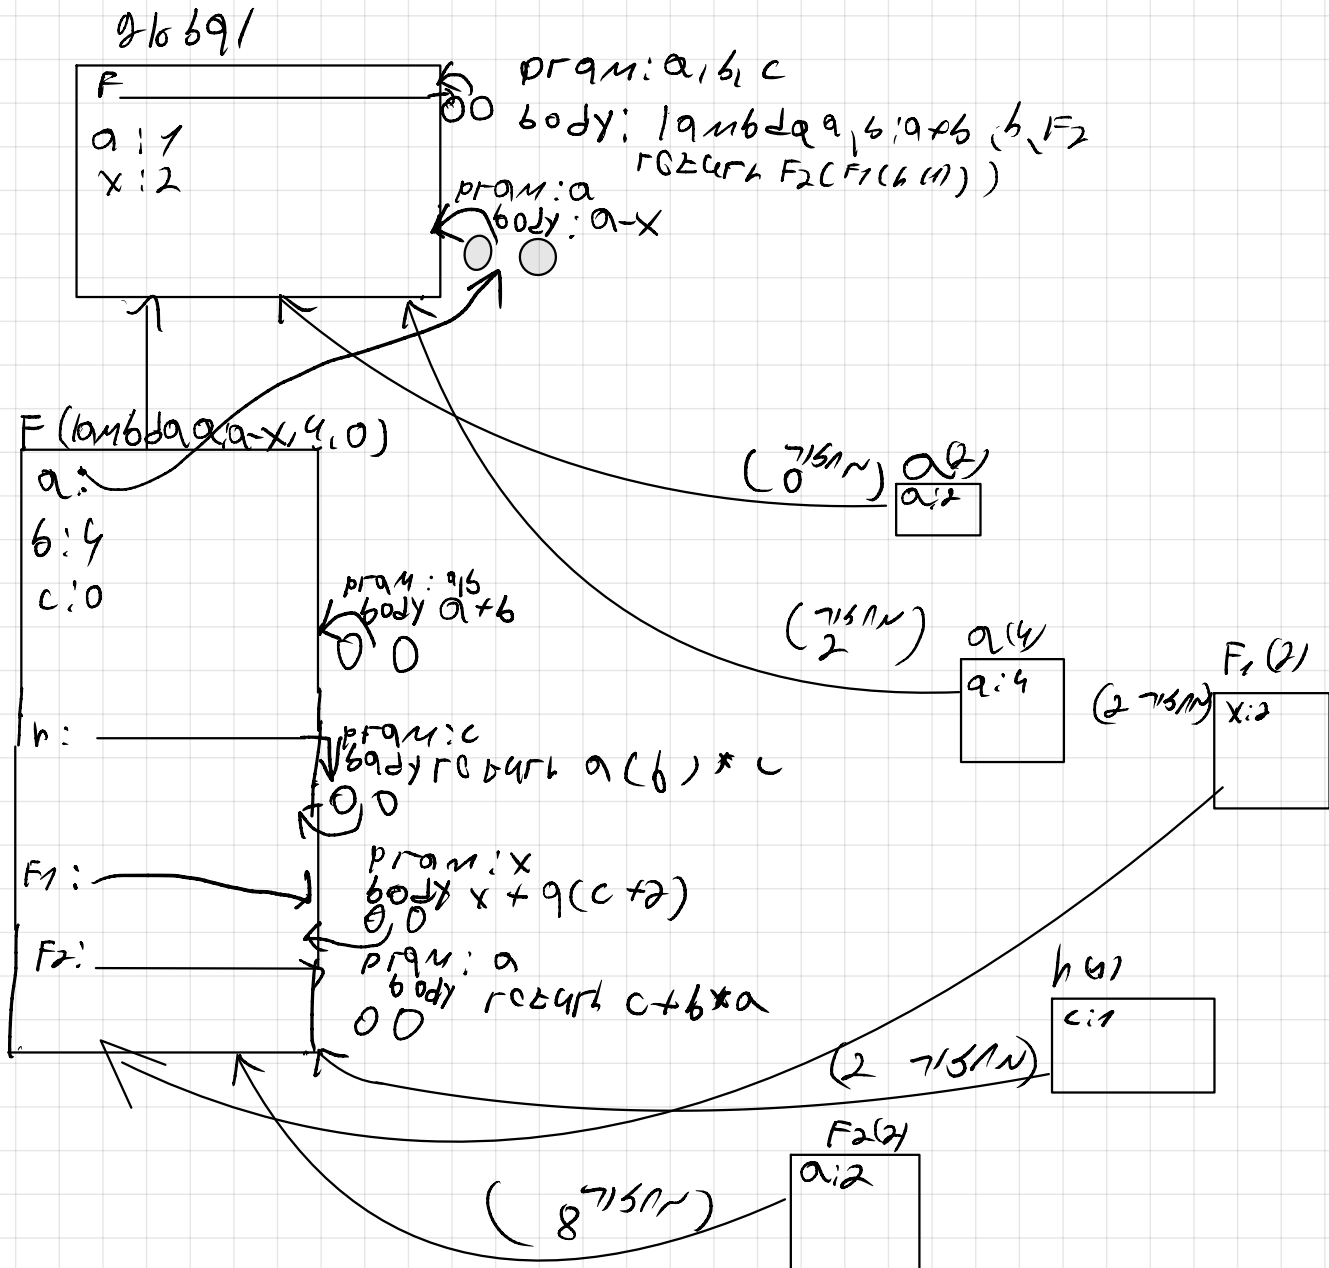 global
F
a:1
x:2
pram: a, b, c
body: lambda a,b:a+b, h, F2
return F2(F1(h(1)))
pram: a
body: a-x
F (lambda a a-x, 4, 0)
a:
b: 4
c: 0
pram: a,b
body a+b
h:
pram: c
body return a(b) * c
F1:
pram: x
body x + a(c+2)
F2:
pram: a
body return c+b*a
(מחזיר 0)
a(2)
a:2
(מחזיר 2)
a(4)
a:4
(מחזיר 2)
F1(2)
x:2
(מחזיר 2)
h(1)
c:1
(מחזיר 8)
F2(2)
a:2